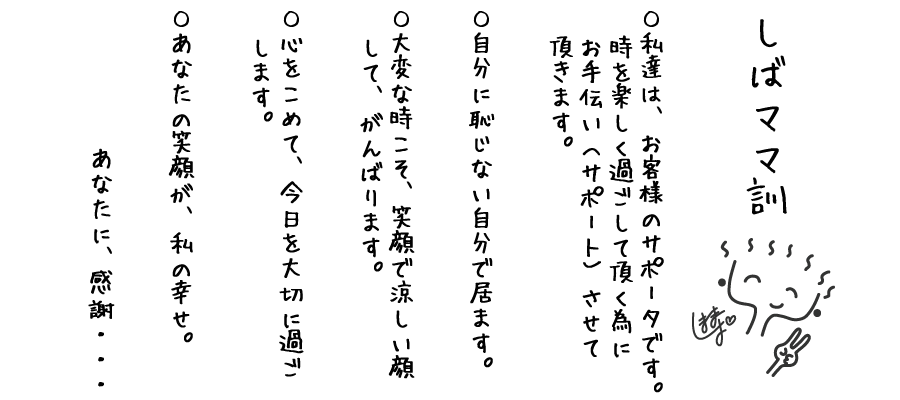 しばママ訓
○私達は、お客様のサポータです。
時を楽しく過ごして頂く為に
お手伝い(サポート)させて
頂きます。
○自分に恥じない自分で居ます。
○大変な時こそ、笑顔で涼しい顔
して、がんばります。
○心をこめて、今日を大切に過ご
します。
○あなたの笑顔が、私の幸せ。
あなたに、感謝・・・